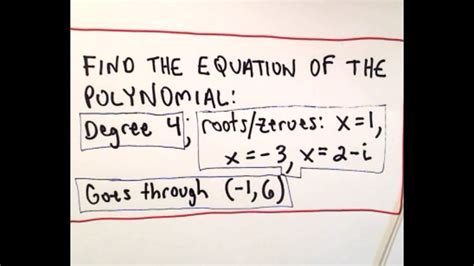 FIND THE EQUATION OF THE
POLYNOMIAL:
Degree 4; roots/zeroes: x=1,
x=-3, x=2-i
Goes through (-1,6)